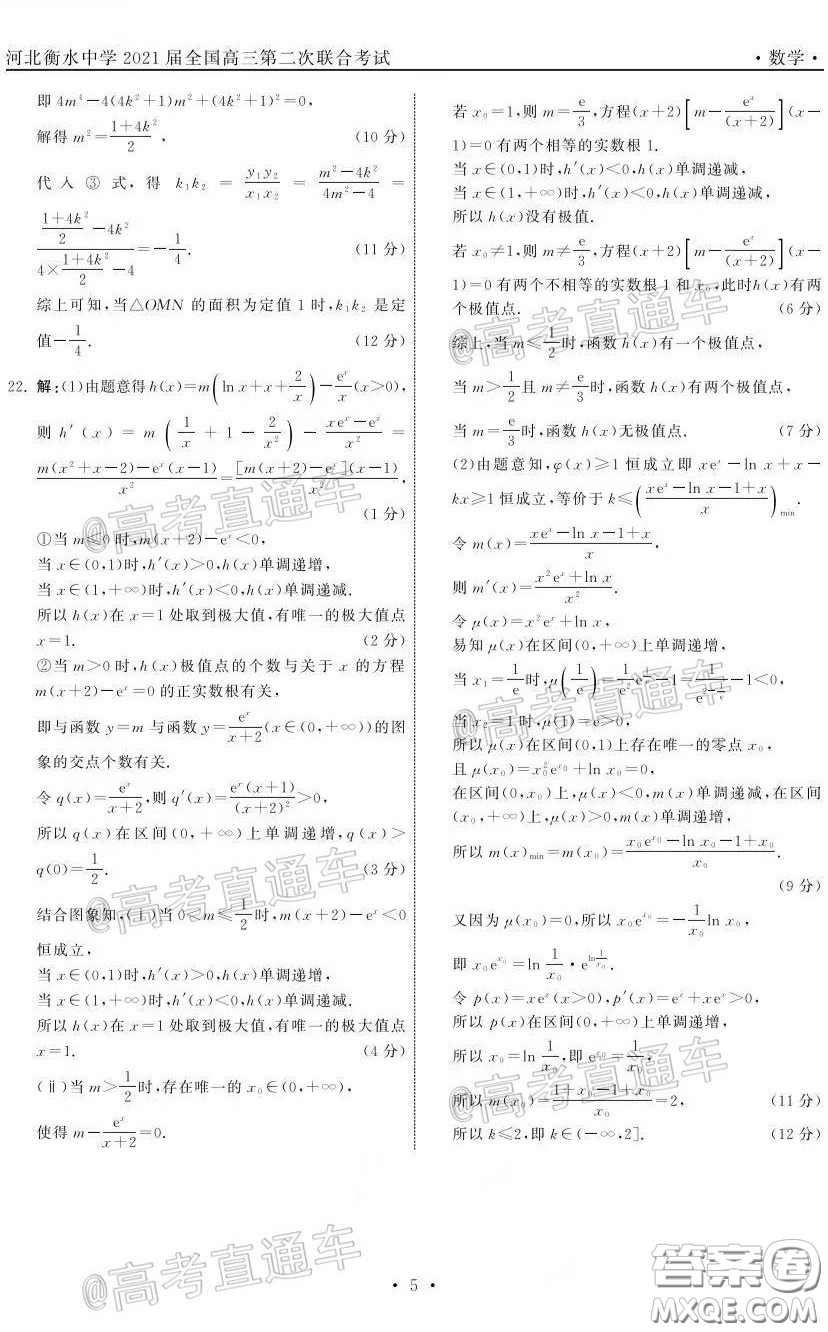 河北衡水中学 2021 届全国高三第二次联合考试
·数学·
即 4m⁴－4(4k²＋1)m²＋(4k²＋1)²＝0,
解得 m²＝(1＋4k²)/2, (10 分)
代入③式，得 k₁k₂ ＝ y₁y₂/x₁x₂ ＝ (m²－4k²)/(4m²－4) ＝
((1＋4k²)/2－4k²)/(4×(1＋4k²)/2－4)＝－1/4. (11 分)
综上可知,当△OMN 的面积为定值 1 时,k₁k₂ 是定
值－1/4. (12 分)
22. 解:(1)由题意得 h(x)＝m(ln x＋x＋2/x)－eˣ/x(x>0),
则 h′(x) ＝ m(1/x ＋ 1 － 2/x²) － (xeˣ－eˣ)/x² ＝
(m(x²＋x－2)－eˣ(x－1))/x²＝([m(x＋2)－eˣ](x－1))/x².
(1 分)
①当 m≤0 时,m(x＋2)－eˣ<0,
当 x∈(0,1)时,h′(x)>0,h(x)单调递增,
当 x∈(1,＋∞)时,h′(x)<0,h(x)单调递减.
所以 h(x)在 x＝1 处取到极大值,有唯一的极大值点
x＝1. (2 分)
②当 m>0 时,h(x)极值点的个数与关于 x 的方程
m(x＋2)－eˣ＝0 的正实数根有关,
即与函数 y＝m 与函数 y＝eˣ/(x＋2)(x∈(0,＋∞))的图
象的交点个数有关.
令 q(x)＝eˣ/(x＋2),则 q′(x)＝eˣ(x＋1)/(x＋2)²>0,
所以 q(x)在区间(0,＋∞)上单调递增,q(x)>
q(0)＝1/2. (3 分)
结合图象知,(ⅰ)当 0<m≤1/2时,m(x＋2)－eˣ<0
恒成立,
当 x∈(0,1)时,h′(x)>0,h(x)单调递增,
当 x∈(1,＋∞)时,h′(x)<0,h(x)单调递减.
所以 h(x)在 x＝1 处取到极大值,有唯一的极大值点
x＝1. (4 分)
(ⅱ)当 m>1/2时,存在唯一的 x₀∈(0,＋∞),
使得 m－eˣ/(x＋2)＝0.
若 x₀＝1,则 m＝e/3,方程(x＋2)[m－eˣ/(x＋2)](x－
1)＝0 有两个相等的实数根 1.
当 x∈(0,1)时,h′(x)<0,h(x)单调递减,
当 x∈(1,＋∞)时,h′(x)<0,h(x)单调递减,
所以 h(x)没有极值.
若 x₀≠1,则 m≠e/3,方程(x＋2)[m－eˣ/(x＋2)](x－
1)＝0 有两个不相等的实数根 1 和 x₀,此时h(x)有两
个极值点. (6 分)
综上,当 m≤1/2时,函数 h(x)有一个极值点,
当 m>1/2且 m≠e/3时,函数 h(x)有两个极值点,
当 m＝e/3时,函数 h(x)无极值点. (7 分)
(2)由题意知,φ(x)≥1 恒成立即 xeˣ－ln x＋x－
kx≥1 恒成立,等价于 k≤((xeˣ－ln x－1＋x)/x)min.
令 m(x)＝(xeˣ－ln x－1＋x)/x,
则 m′(x)＝(x²eˣ＋ln x)/x².
令 μ(x)＝x²eˣ＋ln x,
易知 μ(x)在区间(0,＋∞)上单调递增,
当 x₁＝1/e时,μ(1/e)＝(1/e²)e^(1/e)－1＝1/e^(2－1/e)－1<0,
当 x₂＝1时,μ(1)＝e>0,
所以 μ(x)在区间(0,1)上存在唯一的零点 x₀,
且 μ(x₀)＝x₀²e^x₀＋ln x₀＝0,
在区间(0,x₀)上,μ(x)<0,m(x)单调递减,在区间
(x₀,＋∞)上,μ(x)>0,m(x)单调递增,
所以 m(x)min＝m(x₀)＝(x₀e^x₀－ln x₀－1＋x₀)/x₀.
(9 分)
又因为 μ(x₀)＝0,所以 x₀e^x₀＝－(1/x₀)ln x₀,
即 x₀e^x₀＝ln 1/x₀·e^(ln 1/x₀).
令 p(x)＝xeˣ(x>0),p′(x)＝eˣ＋xeˣ>0,
所以 p(x)在区间(0,＋∞)上单调递增,
所以 x₀＝ln 1/x₀,即 e^x₀＝1/x₀,
所以 m(x₀)＝(1＋x₀－1＋x₀)/x₀＝2, (11 分)
所以 k≤2,即 k∈(－∞,2]. (12 分)
@高考直通车
@高考直通车
@高考直通车
@高考直通车
@高考直通车
@高考直通车
@高考直通车
· 5 ·
答案卷
MXQE.COM